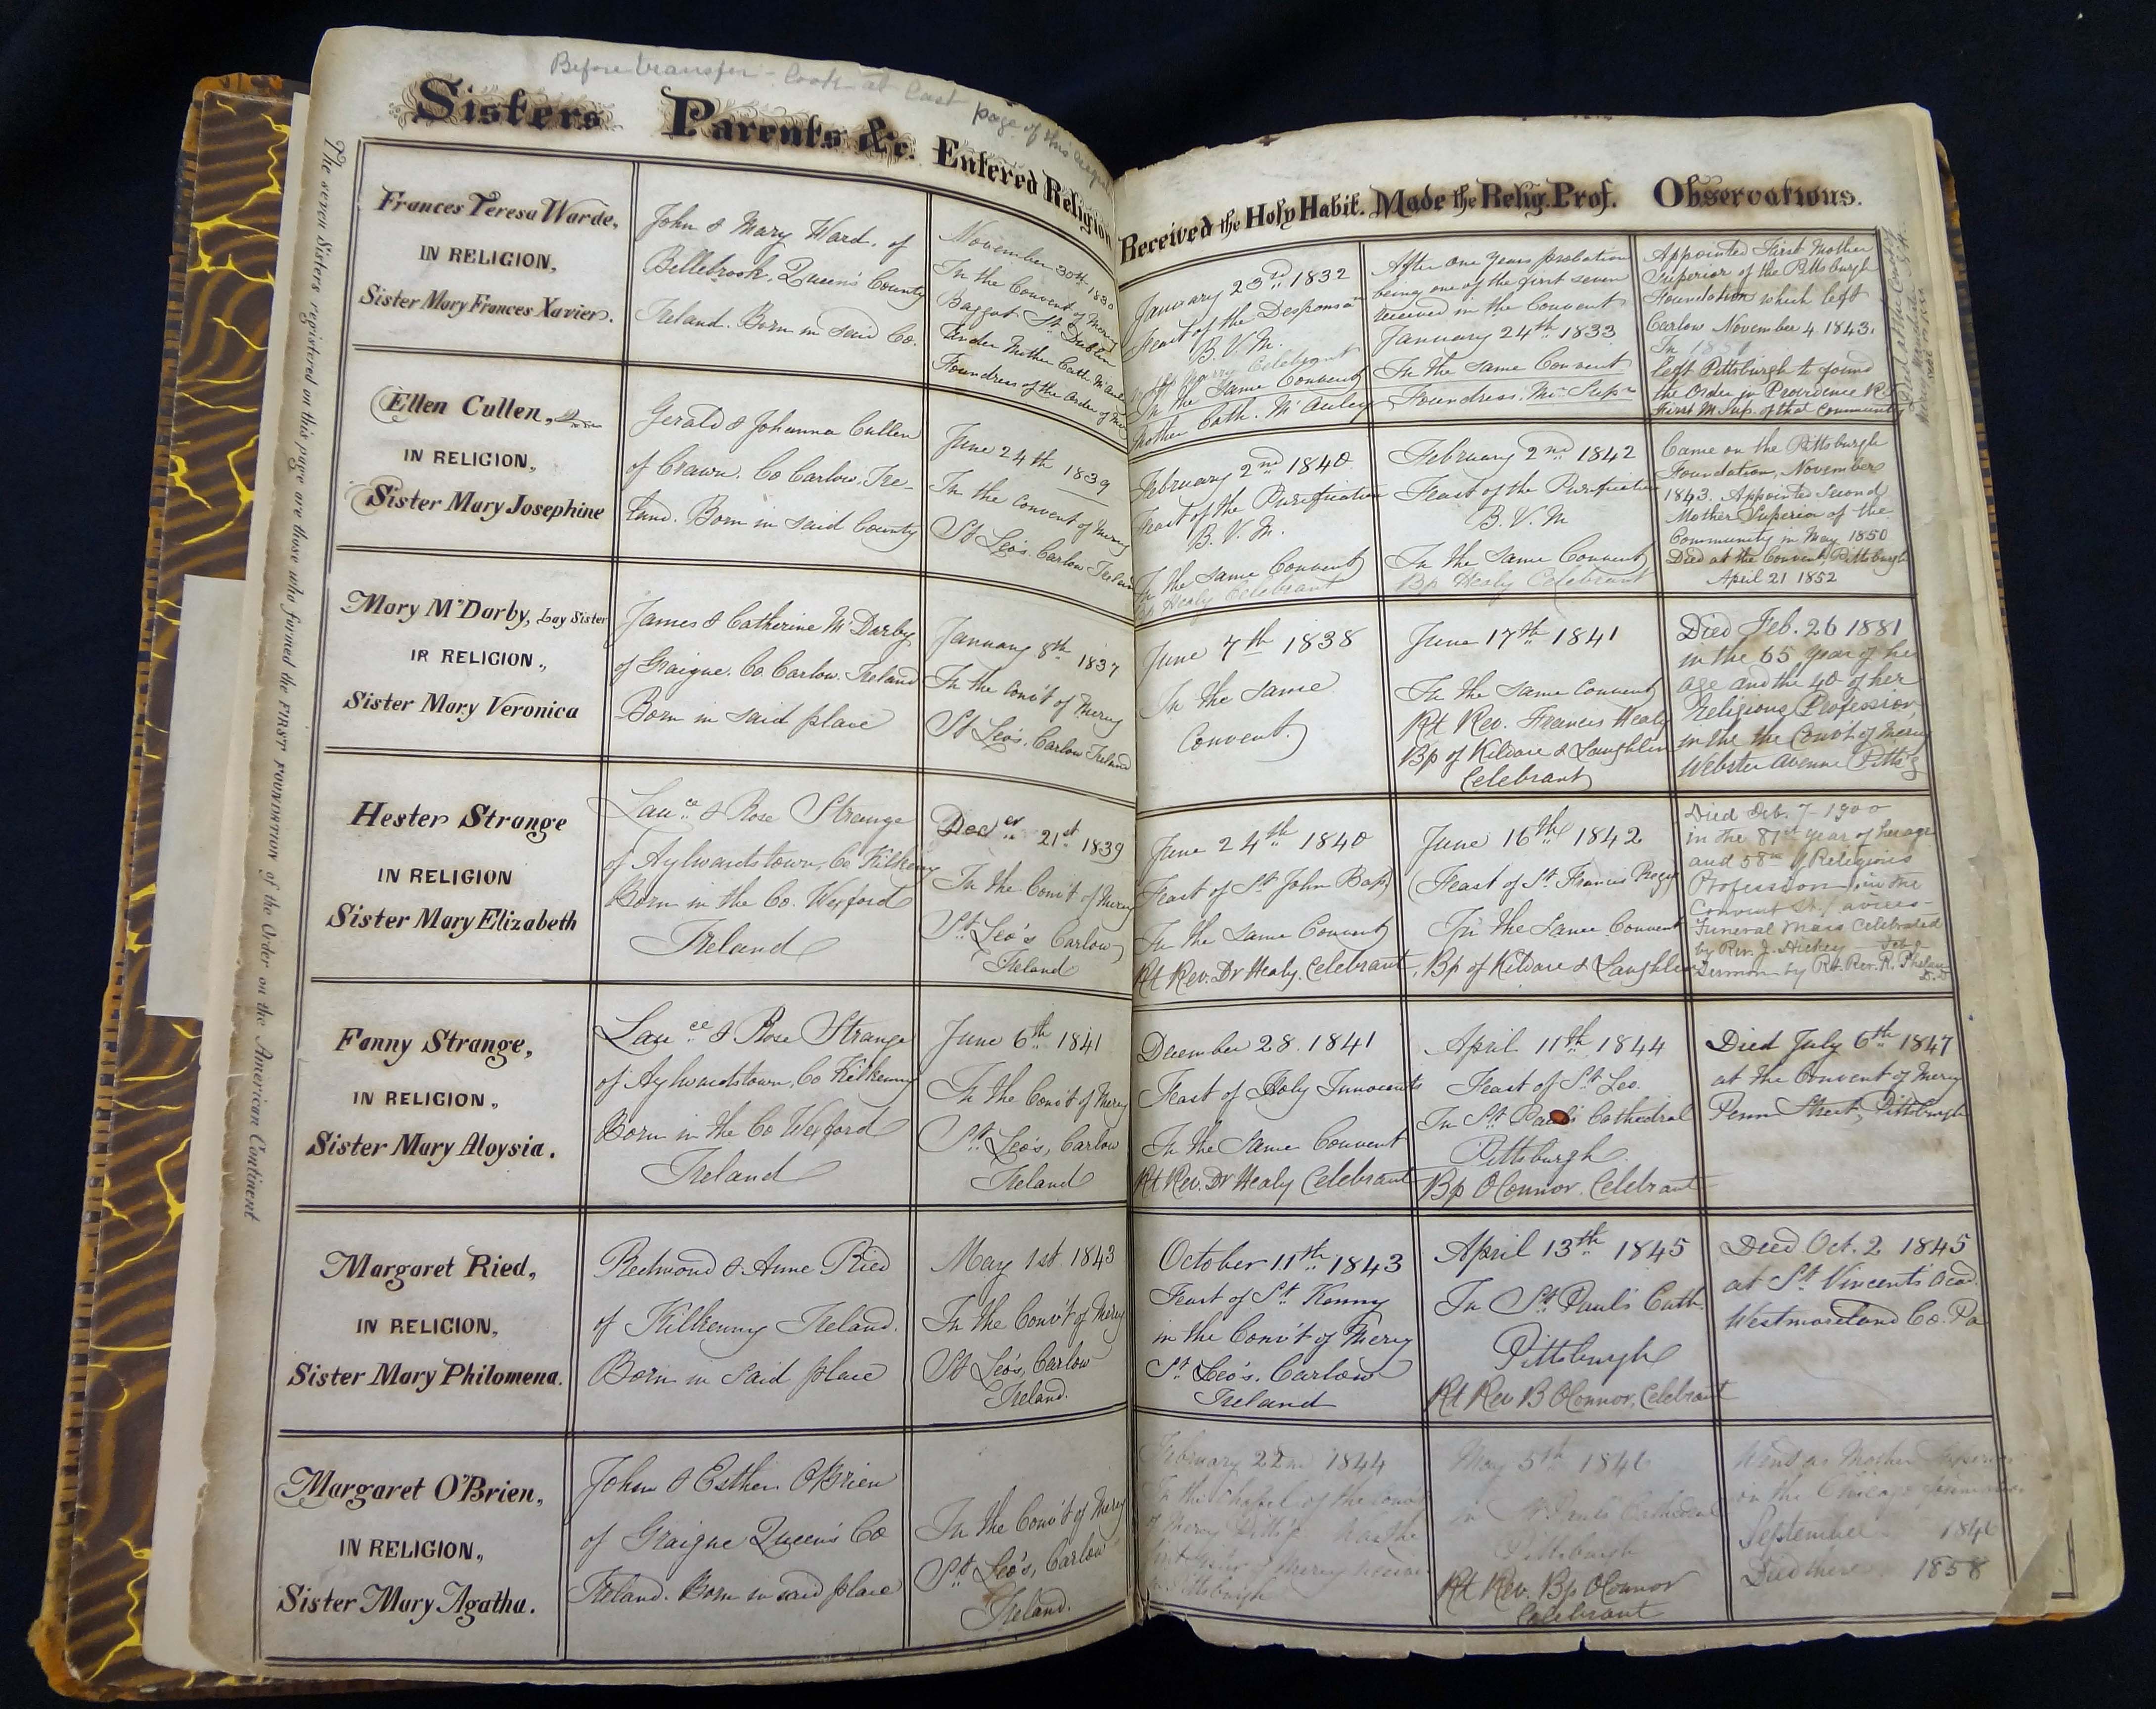 Before transfer - Look at last page of this
Sisters Parents &c. Entered Religion Received the Holy Habit. Made the Relig. Prof. Observations.
The seven Sisters registered on this page are those who formed the FIRST FOUNDATION of the Order on the American Continent
Frances Teresa Warde,
IN RELIGION,
Sister Mary Frances Xavier.
John & Mary Ward. of
Bellebrook, Queen's County
Ireland. Born in said Co.
November 30th 1830
In the Convent of Mercy
Baggot St. Dublin
Under Mother Cath. McAuley
Foundress of the Order of
January 23rd 1832
Feast of the Desponsa
B. V. M.
Celebrant
In the Same Convent
Mother Cath. McAuley
After one years probation
being one of the first seven
received in the Convent
January 24th 1833
In the Same Convent
Foundress, Mr. Supr
Appointed First Mother
Superior of the Pittsburgh
Foundation which left
Carlow November 4 1843.
In
left Pittsburgh to found
the Order in Providence R.I.
First M. Sup. of that Community
Died at the Convent
Ellen Cullen,
IN RELIGION,
Sister Mary Josephine
Gerald & Johanna Cullen
of Crawn. Co Carlow. Ire-
land. Born in said County
June 24th 1839
In the Convent of Mercy
St Leo's. Carlow Ireland
February 2nd 1840
Feast of the Purification
B. V. M.
In the Same Convent
Bp Healy Celebrant
February 2nd 1842
Feast of the Purification
B. V. M
In the Same Convent
Bp Healy Celebrant
Came on the Pittsburgh
Foundation, November
1843. Appointed Second
Mother Superior of the
Community in May 1850
Died at the Convent Pittsburgh
April 21 1852
Mary McDarby, Lay Sister
IR RELIGION.,
Sister Mary Veronica
James & Catherine McDarby
of Graigue. Co. Carlow. Ireland
Born in said place
January 8th 1837
In the Conv't of Mercy
St Leo's. Carlow Ireland
June 7th 1838
In the Same
Convent.
June 17th 1841
In the Same Convent
Rt Rev. Francis Healy
Bp of Kildare & Laughlin
Celebrant
Died Feb. 26 1881
in the 65 year of her
age and the 40 of her
Religious Profession
in the the Conv't of Mercy
Webster Avenue Pitts'g
Hester Strange
IN RELIGION
Sister Mary Elizabeth
Laure & Rose Strange
of Aylwardstown, Co Kilkenny
Born in the Co. Wexford
Ireland
Decer 21st 1839
In the Conv't of Mercy
St Leo's Carlow
Ireland
June 24th 1840
Feast of St John Bap
In the Same Convent
Rt Rev. Dr Healy. Celebrant
June 16th 1842
(Feast of St. Francis Regis
In the Same Convent
Bp of Kildare & Laughlin
Died Feb. 7 - 1900
in the 81st year of her age
and 58th of Religious
Profession, in the
Convent St. Xaviers -
Funeral Mass Celebrated
by Rev. J. Hickey - Feb 9 -
Sermon by Rt. Rev. R. Phelan
D.D
Fanny Strange,
IN RELIGION,
Sister Mary Aloysia.
Laurce & Rose Strange
of Aylwardstown, Co Kilkenny
Born in the Co Wexford
Ireland
June 6th 1841
In the Conv't of Mercy
St. Leo's, Carlow
Ireland
December 28. 1841
Feast of Holy Innocents
In the Same Convent
Rt Rev. Dr Healy Celebrant
April 11th 1844
Feast of St Leo.
In St Paul's Cathedral
Pittsburgh
Bp O'Connor. Celebrant
Died July 6th 1847
at the Convent of Mercy
Penn Street, Pittsburgh
Margaret Ried,
IN RELIGION,
Sister Mary Philomena.
Redmond & Anne Ried
of Kilkenny Ireland.
Born in Said place
May 1st. 1843
In the Conv't of Mercy
St Leo's, Carlow
Ireland.
October 11th 1843
Feast of St. Kenny
in the Conv't of Mercy
St Leo's. Carlow
Ireland
April 13th 1845
In St Paul's Cath.
Pittsburgh
Rt Rev B O'Connor, Celebrant
Died Oct. 2 1845
at St Vincent's Acad.
Westmoreland Co. Pa
Margaret O'Brien,
IN RELIGION,
Sister Mary Agatha.
John & Esther O'Brien
of Graigue Queen's Co
Ireland. Born in said place
In the Conv't of Mercy
St Leo's, Carlow
Ireland.
February 22nd 1844
In the Chapel of the Conv't
of Mercy Pitt'g was the
first Sister of Mercy
Pittsburgh
May 5th 1846
in St Paul's Cathedral
Pittsburgh
Rt Rev. Bp O'Connor
Celebrant
Went as Mother Superior
on the Chicago foundation
September 1846
Died there 1858